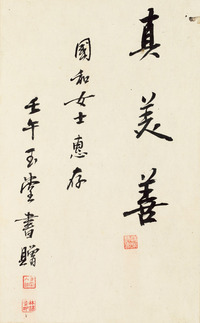 真美善
國和女士惠存
壬午玉堂書贈